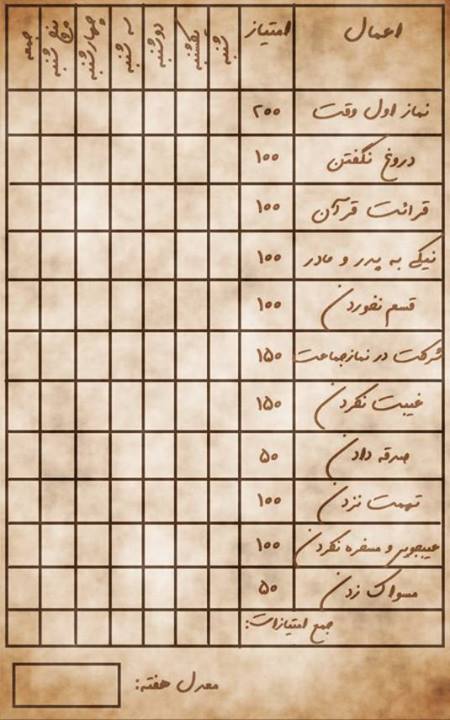 اعمال امتیاز شنبه یکشنبه دوشنبه سه شنبه چهارشنبه پنج شنبه جمعه
نماز اول وقت ۲۰۰
دروغ نگفتن ۱۰۰
قرائت قرآن ۱۰۰
نیکی به پدر و مادر ۱۰۰
قسم نخوردن ۱۰۰
شرکت در نماز جماعت ۱۵۰
غیبت نکردن ۱۵۰
صدقه دادن ۵۰
تهمت نزدن ۱۰۰
عیبجویی و مسخره نکردن ۱۰۰
مسواک زدن ۵۰
جمع امتیازات:
معدل هفته: